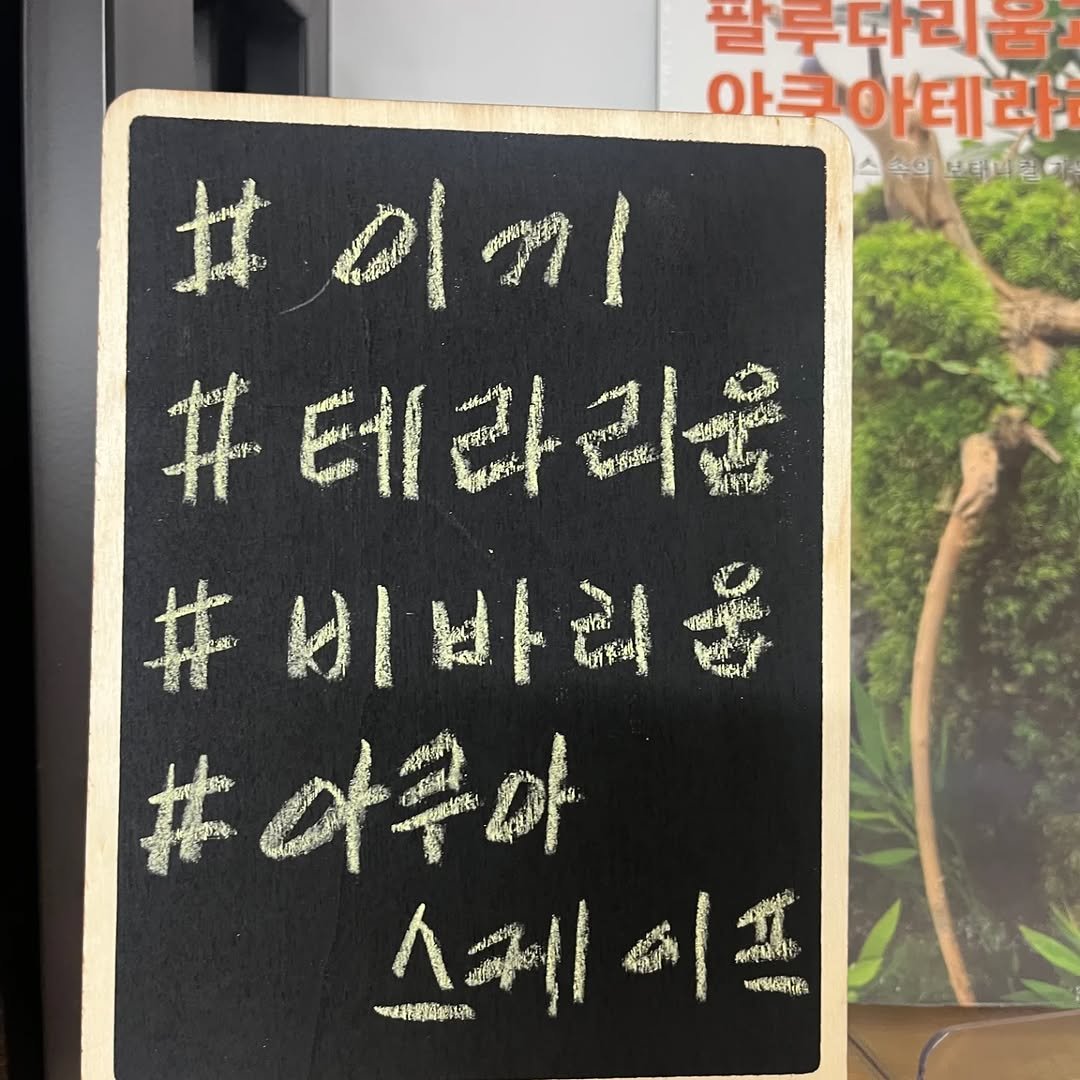 팔루다리움과
아쿠아테라리
스 속의 보태니컬 가
#이끼
#테라리움
#비바리움
#아쿠아
스케이프